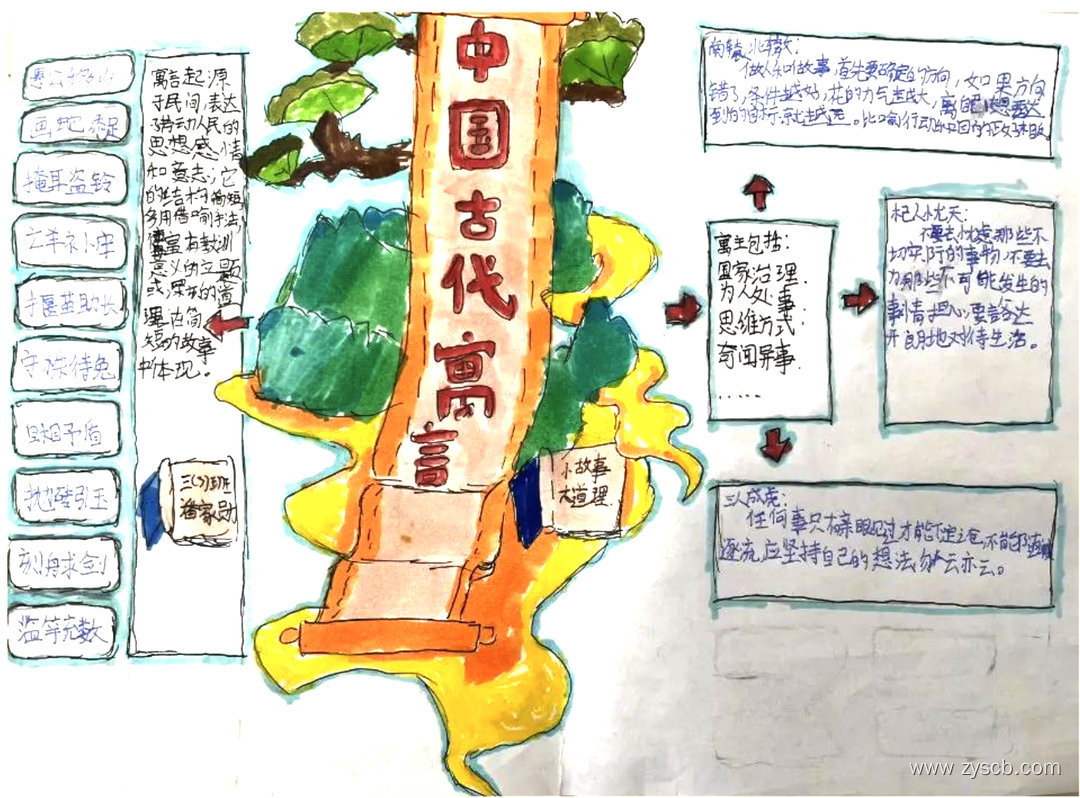 中国古代寓言
愚公移山
画蛇添足
掩耳盗铃
亡羊补牢
揠苗助长
守株待兔
自相矛盾
抛砖引玉
刻舟求剑
滥竽充数
寓言起源
于民间,表达
了劳动人民的
思想感情
和意志;它
的结构简短
多用借喻手法,
富有教训
意义的主题
或深刻的道
理在简
短的故事
中体现。
三(3)班
潘家勋
小故事
大道理
寓言包括:
国家治理.
为人处事
思维方式:
奇闻异事.
.....
南辕北辙:
做人和做事,首先要确定的方向,如果方向
错了,条件越好,花的力气越大,离自己想要达
到的目标就越远。比喻行动和目的正好相反。
杞人忧天:
不要去忧虑那些不
切实际的事物,不要去
为那些不可能发生的
事情担心,要豁达
开朗地对待生活。
三人成虎:
任何事只有亲眼见过才能下定论,不能随波
逐流,应坚持自己的想法,勿人云亦云。
www.zyscb.com